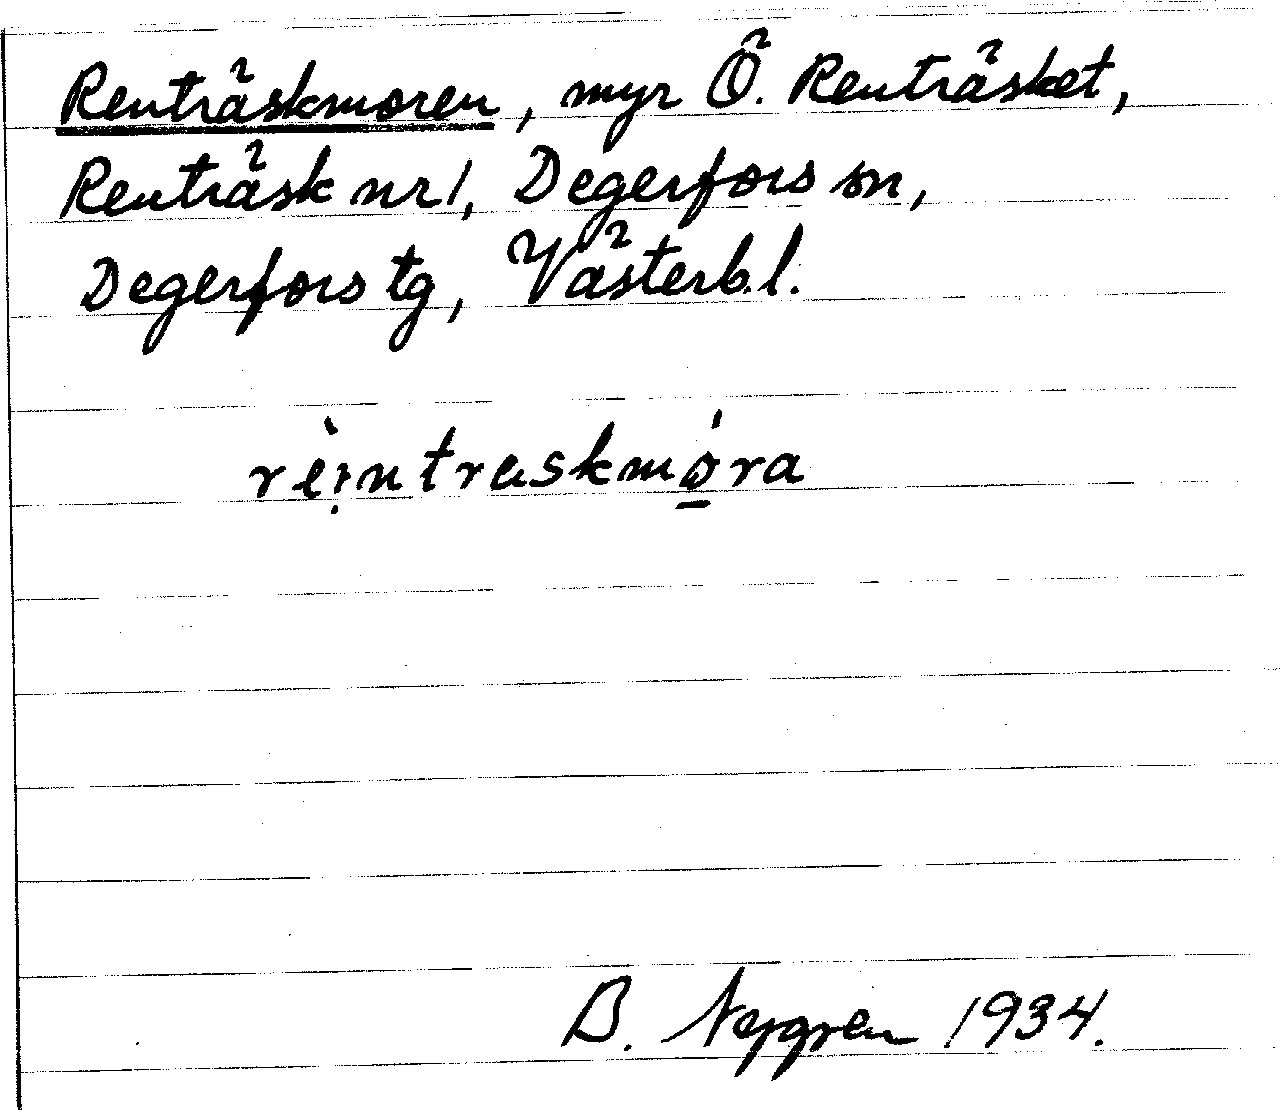 Renträskmoren, myr Ö. Renträsket,
Renträsk nr 1, Degerfors sn,
Degerfors tg, Västerb. l.
rèi̩ntraskmó̱ra
B. Nygren 1934.